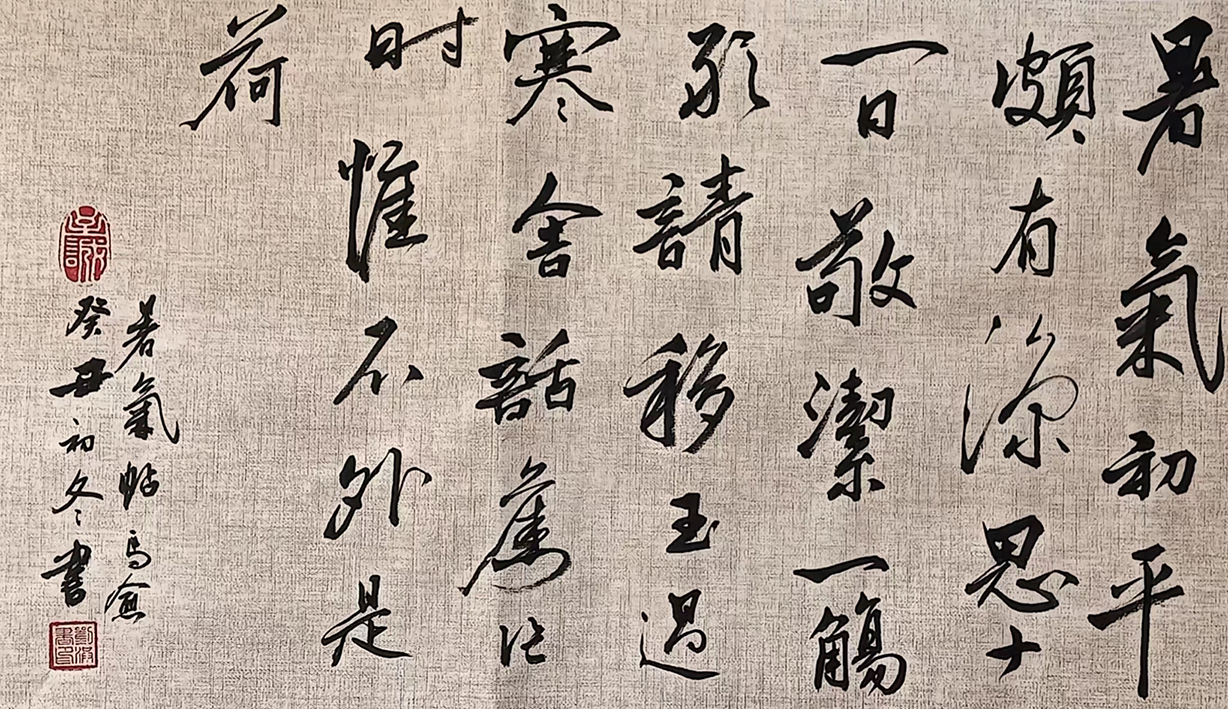 暑氣初平
頗有涼思十
一日敬潔一觴
敢請移玉過
寒舍話舊片
时惟不外是
荷
暑氣帖馬愈
癸丑初冬書